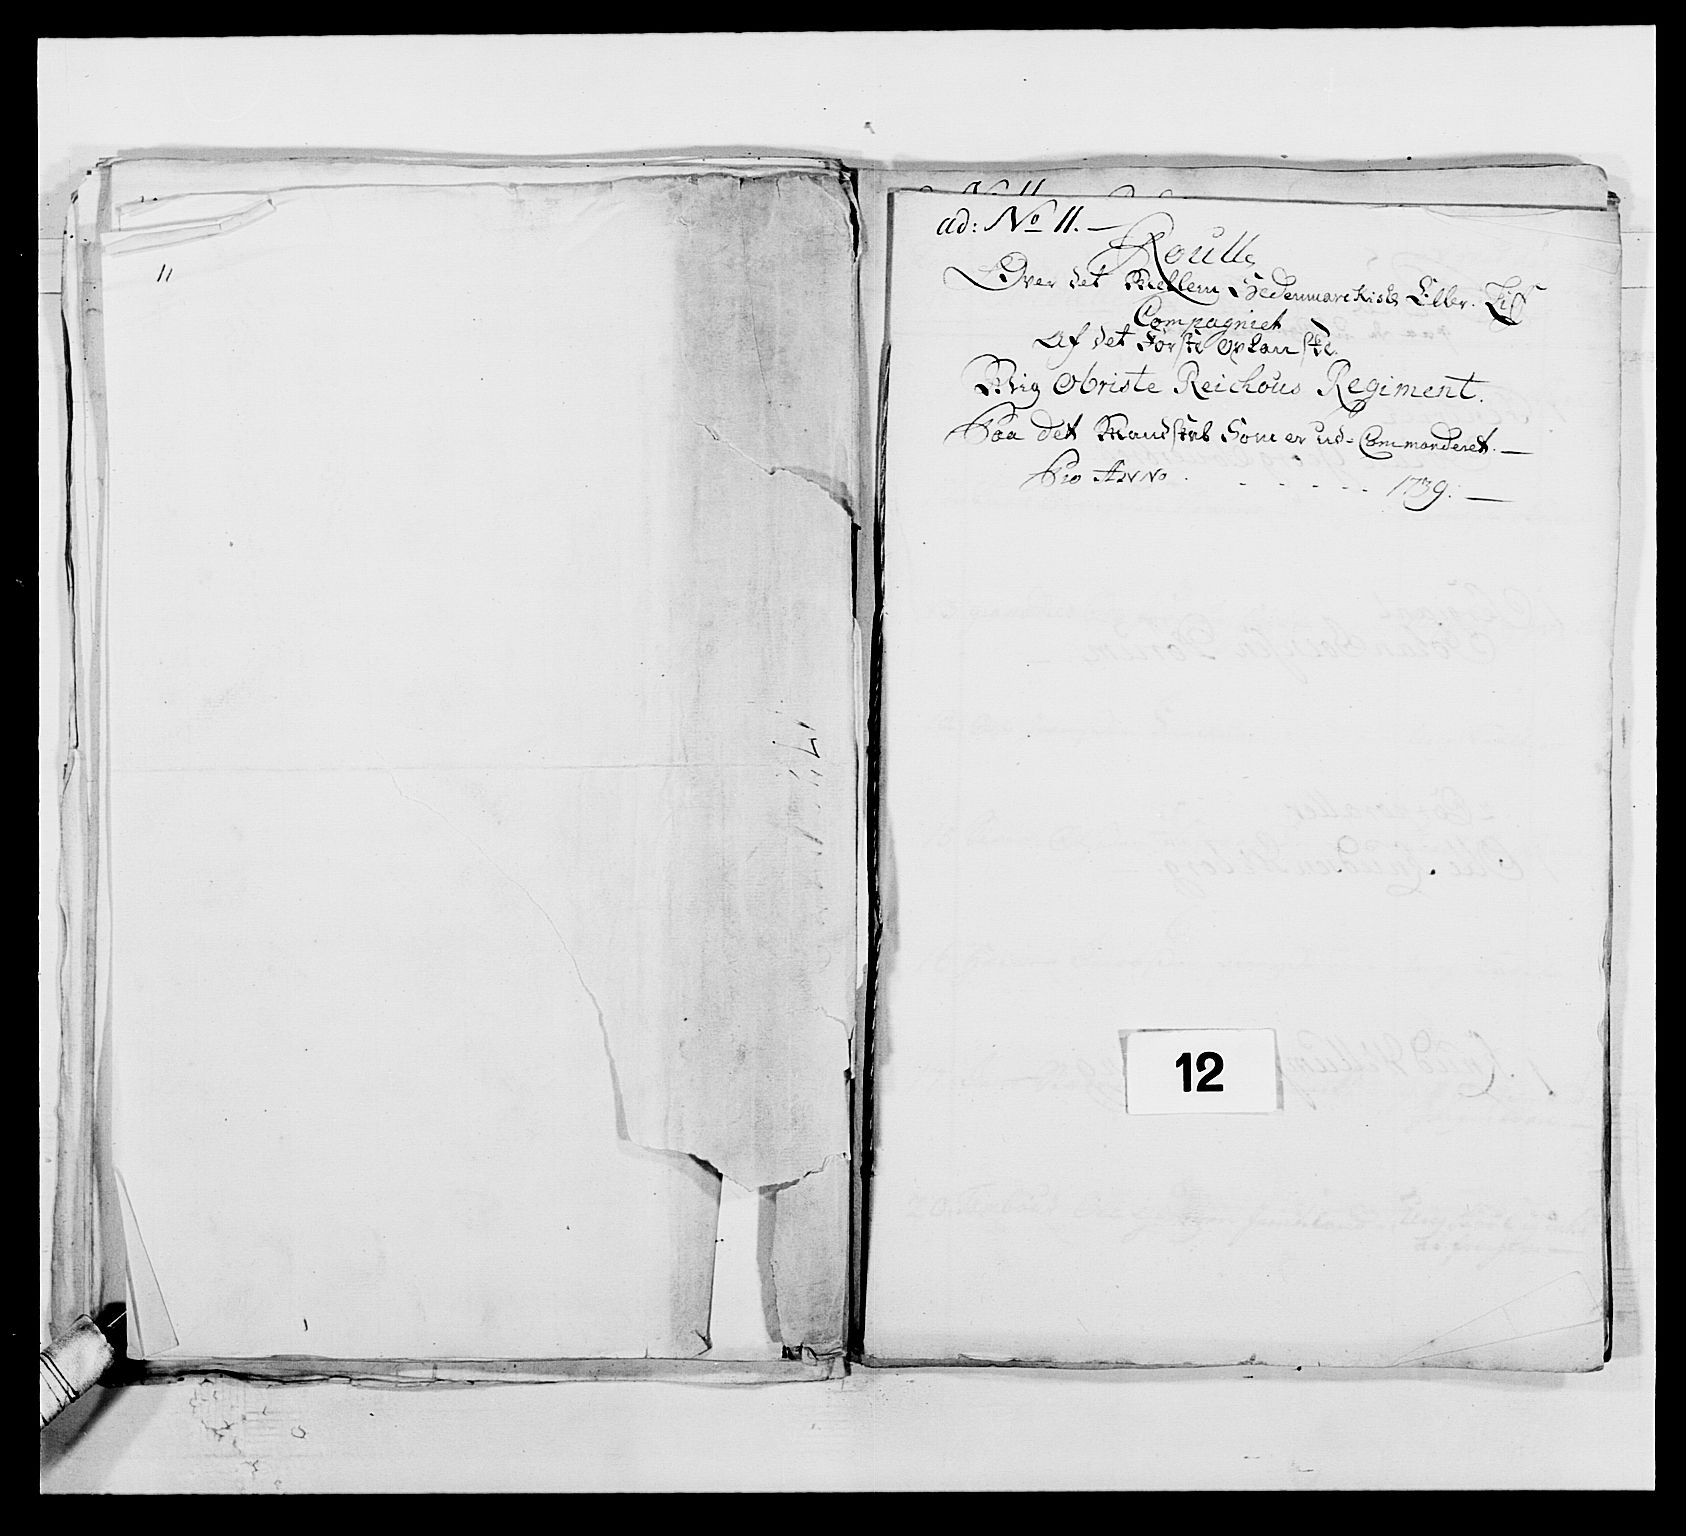 11
ad: No 11.
Roulle
Over det Mellem Hedemarckiske Eller Lif
Compagniet
Af det Første Oplanske
Mig Obriste Reichous Regiment.
Paa det Mandskab Som er ud-Commanderet.
Pro Anno . - - - - - 1739.
12